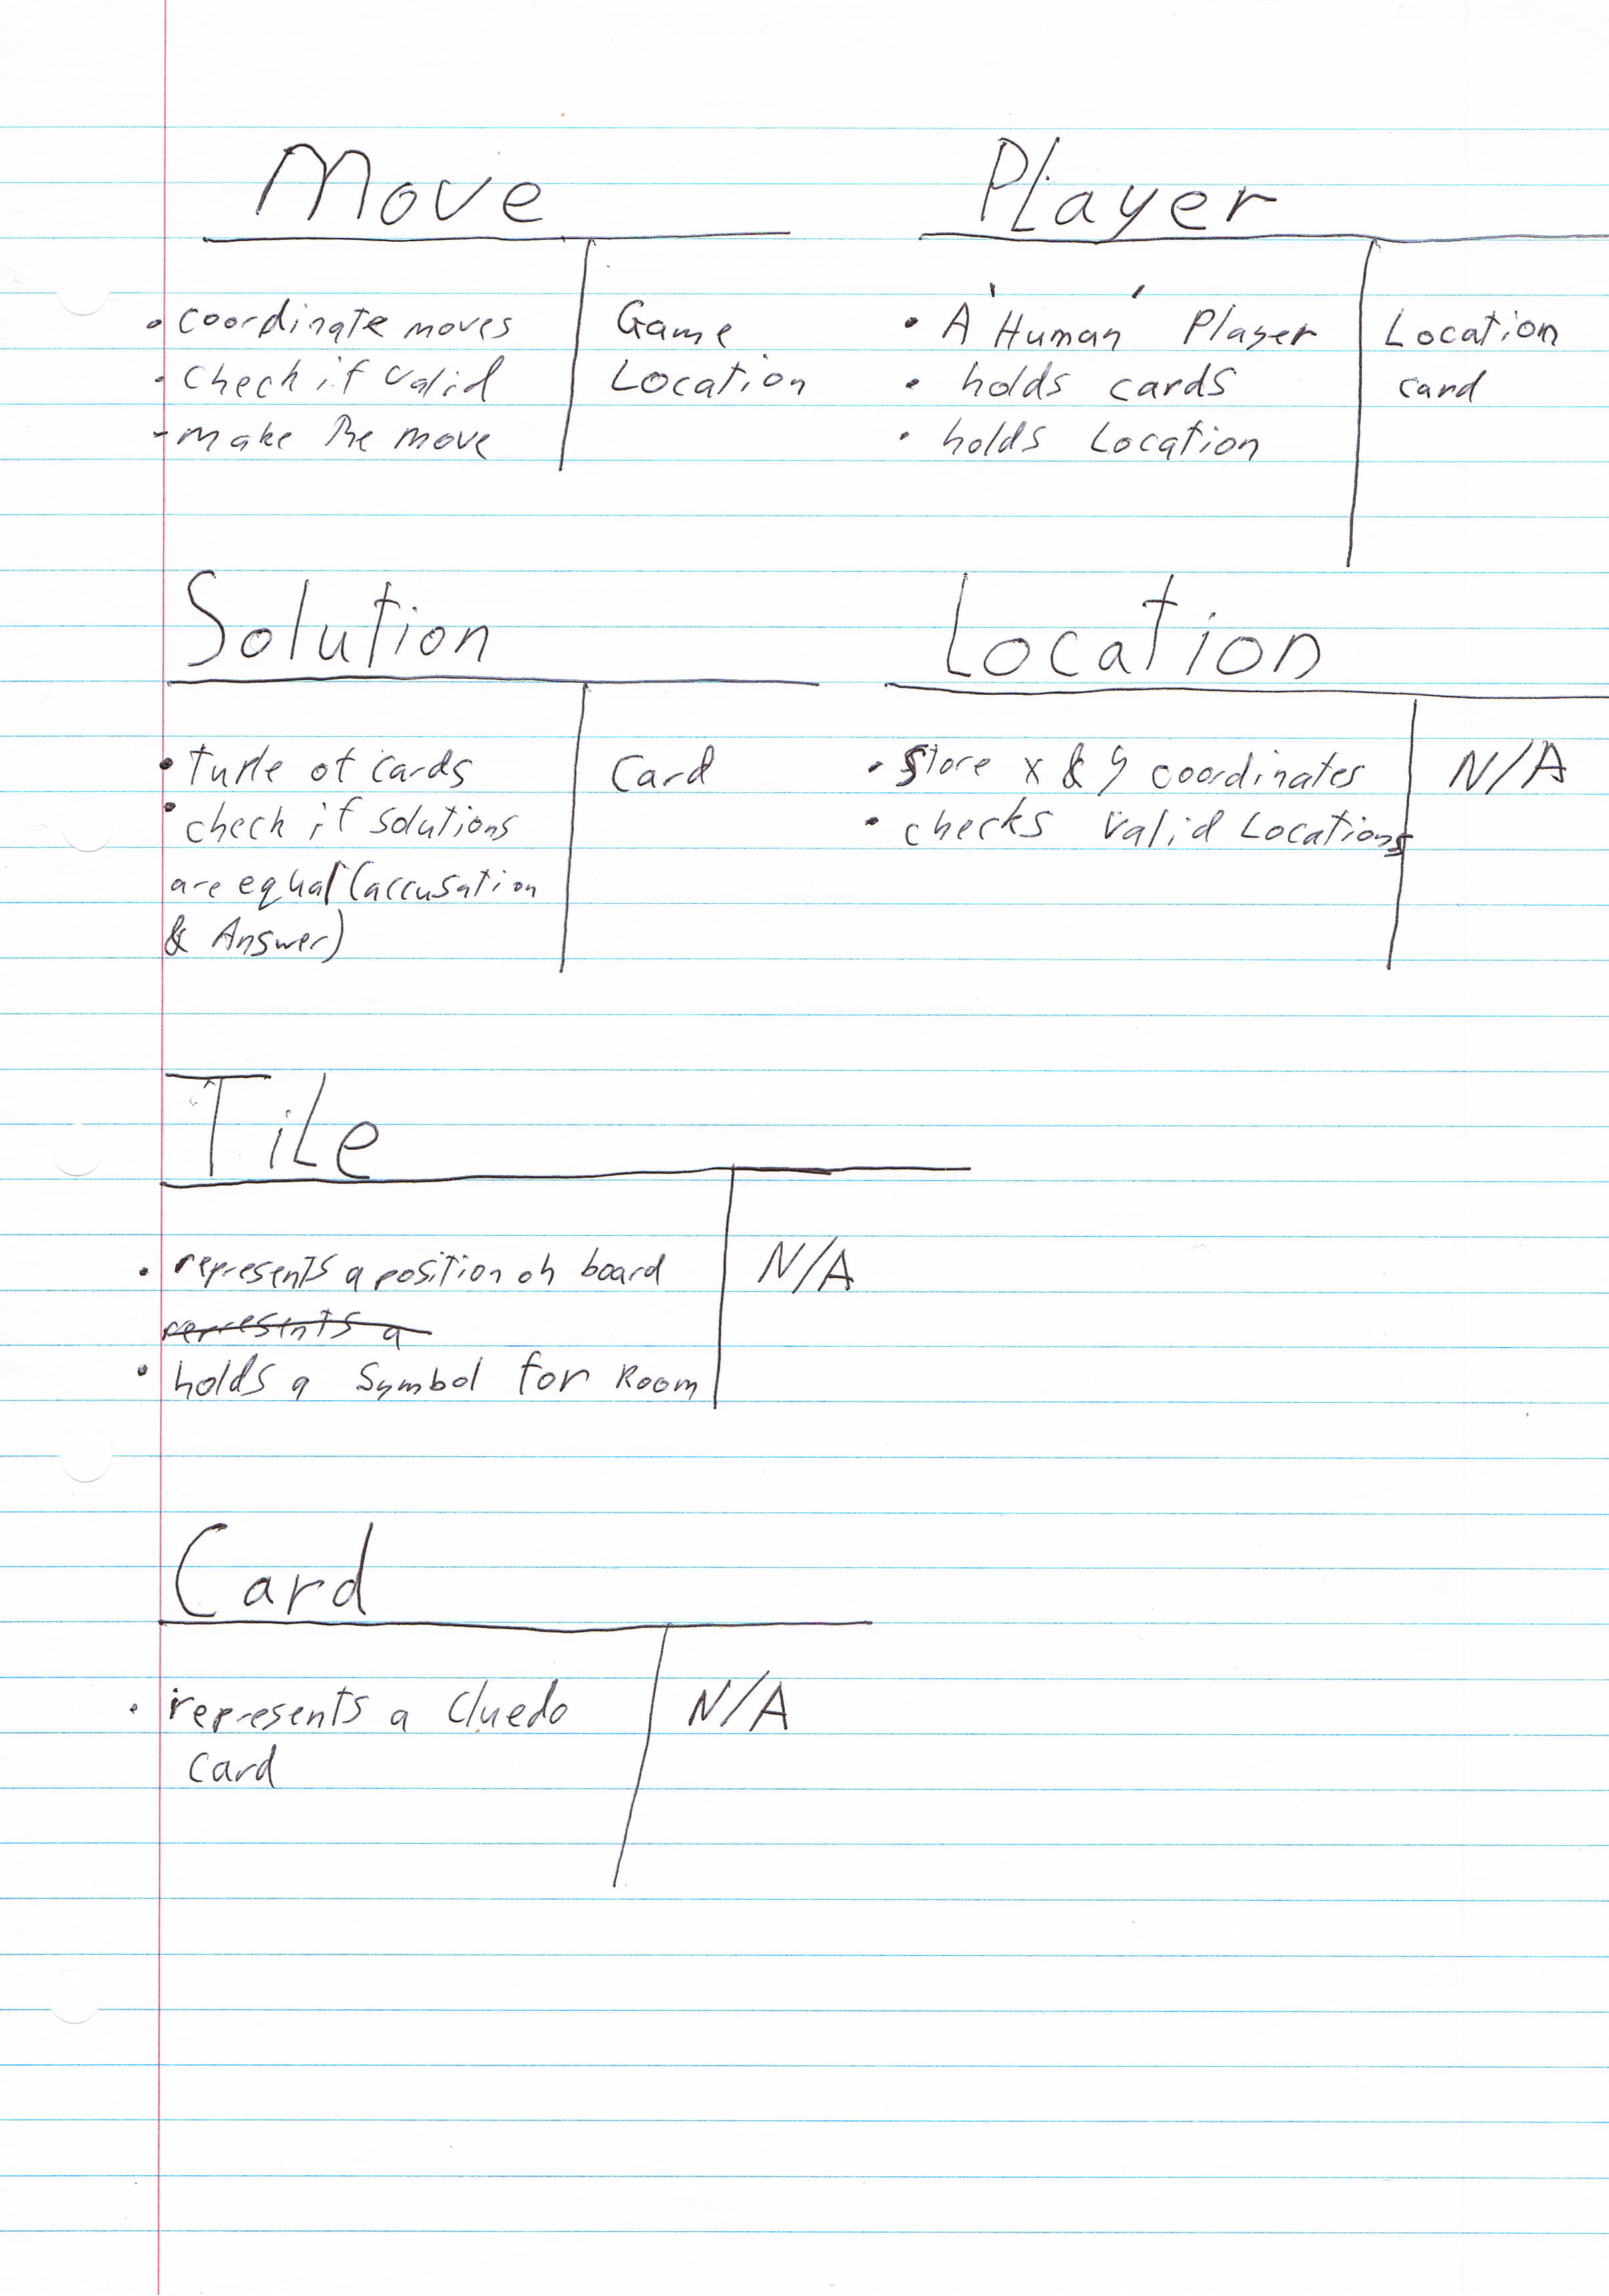 Move
• coordinate moves
• check if valid
- make the move
Game
Location
Player
• A 'Human' Player
• holds cards
• holds Location
Location
card
Solution
• Tuple of cards
• check if solutions
are equal (accusation
& Answer)
Card
Location
• Store x & y coordinates
• checks valid Locations
N/A
Tile
• represents a position on board
represents a
• holds a Symbol for Room
N/A
Card
• represents a Cluedo
Card
N/A